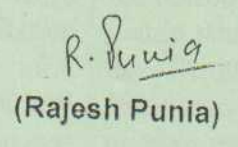 R. Punia
(Rajesh Punia)